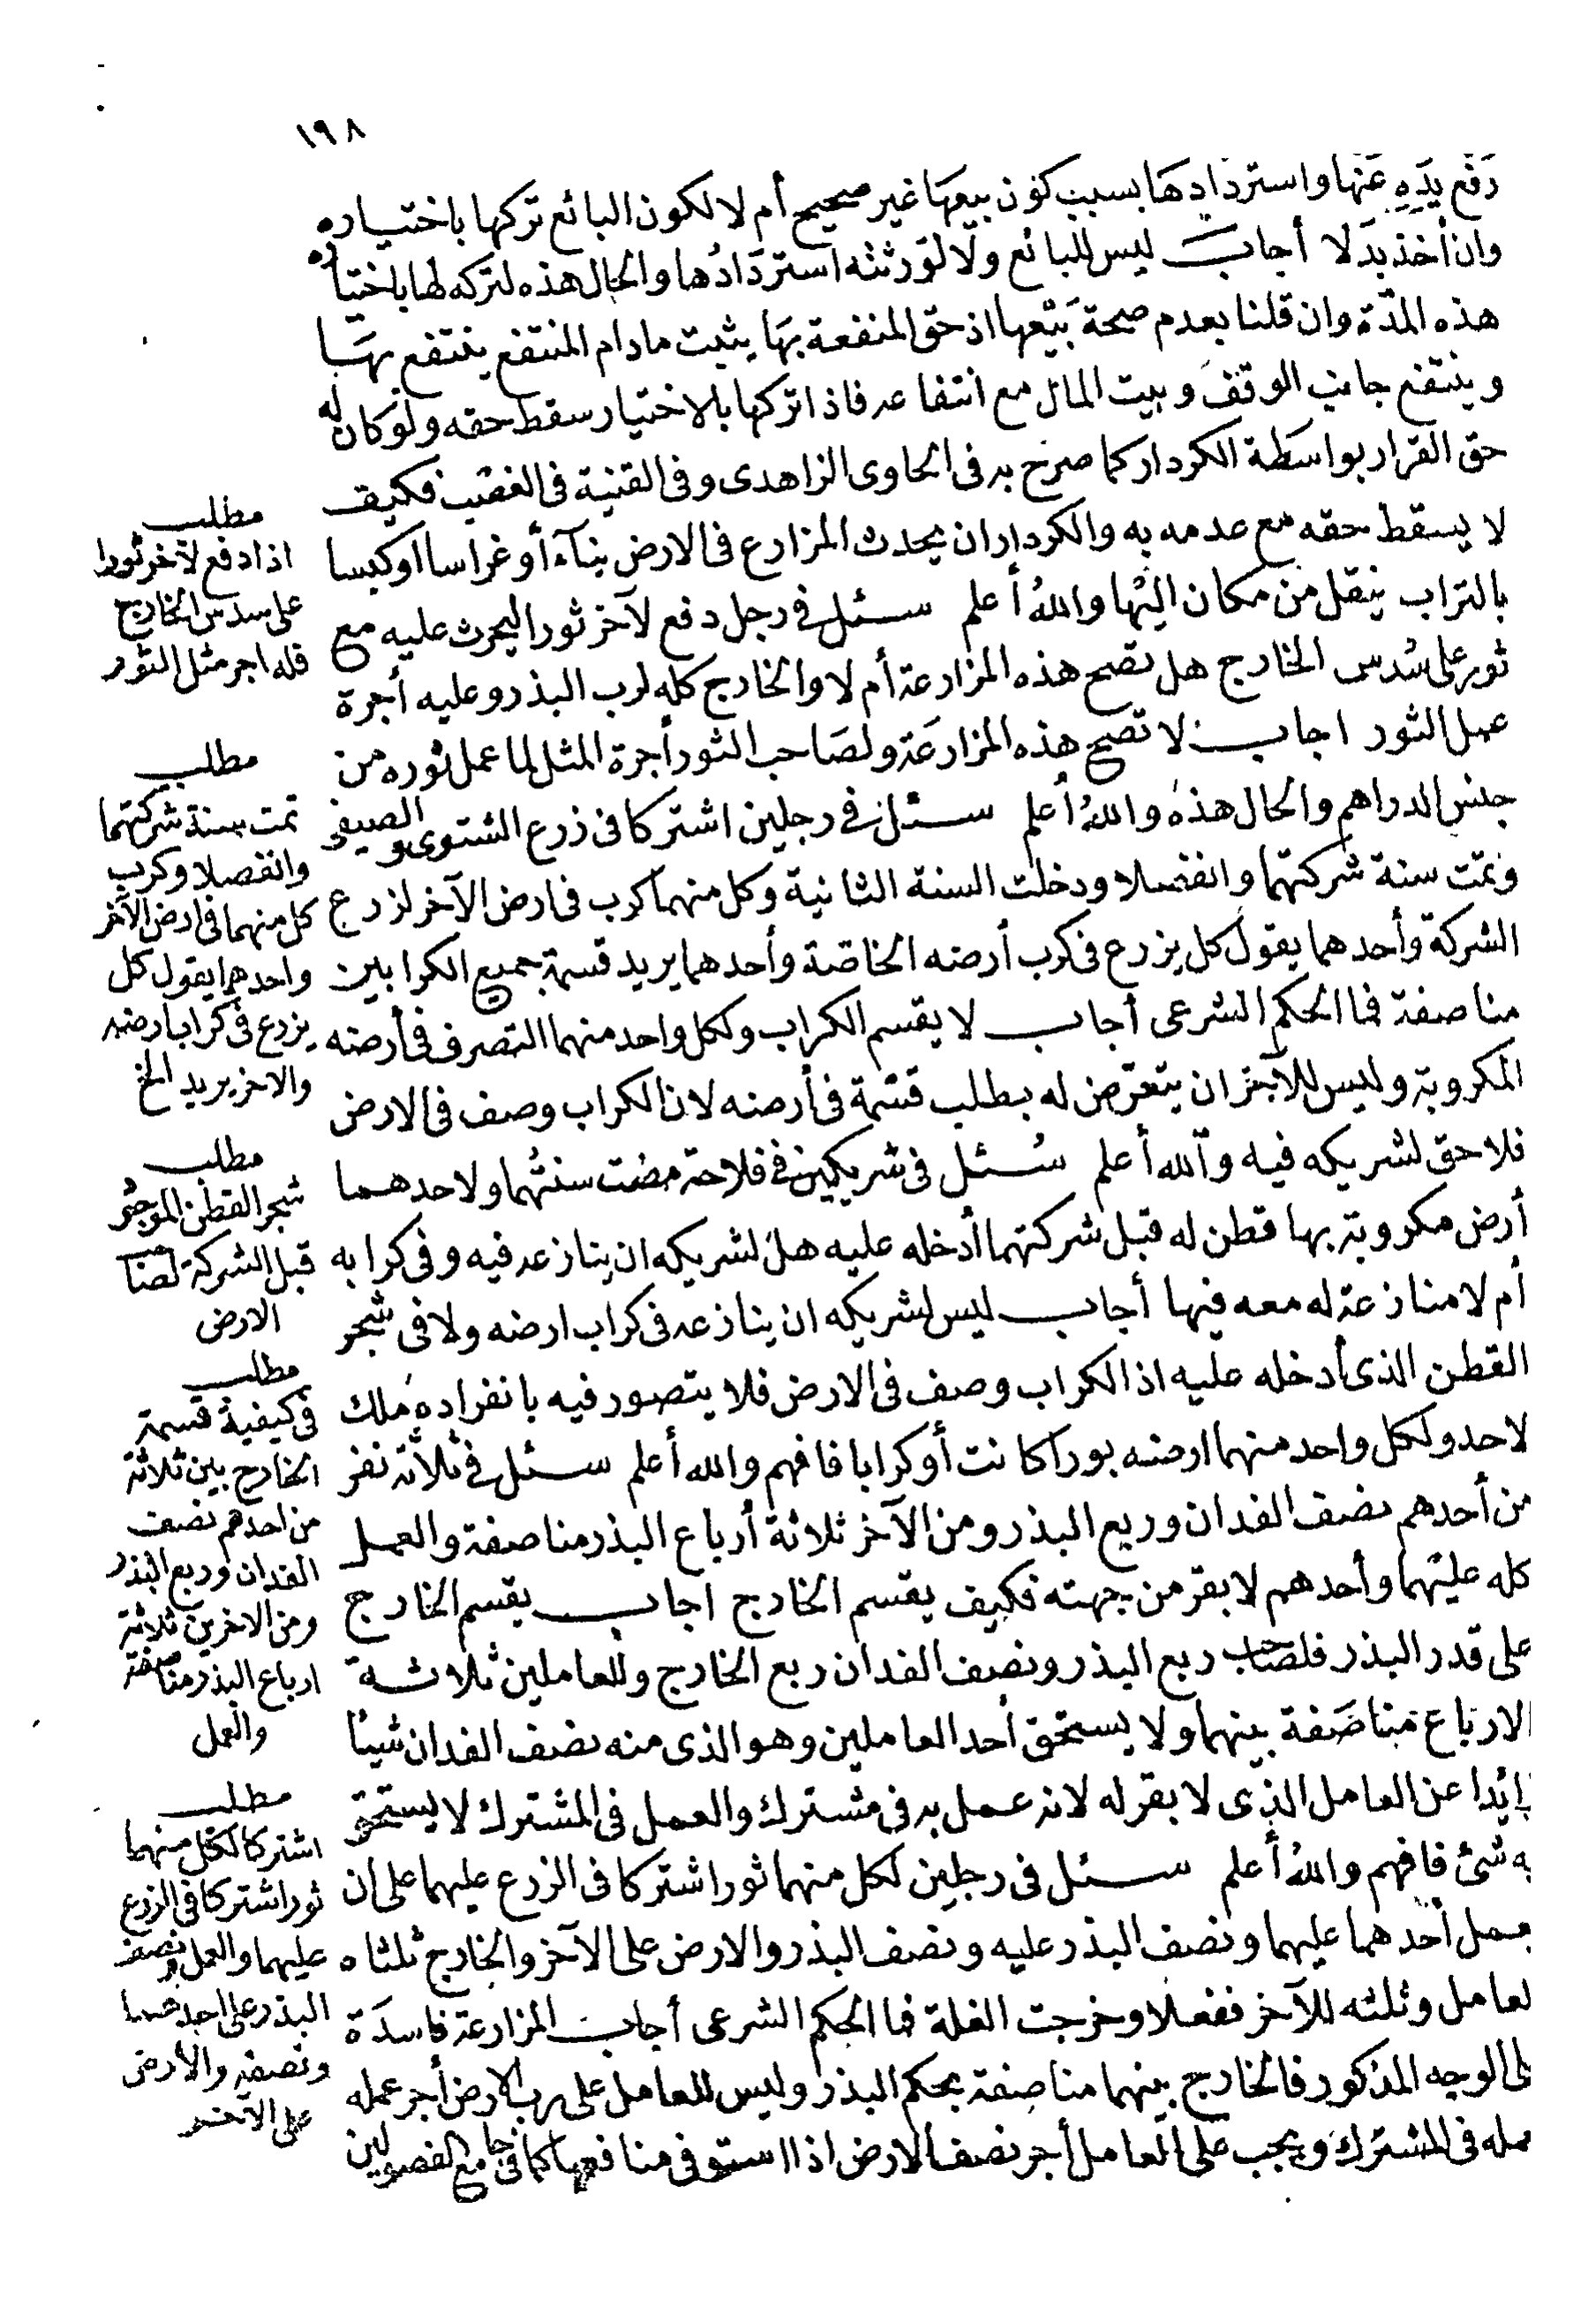 ١٩٨
رفع يده عنها واستردادها بسبب كون بيعها غير صحيح أم لا لكون البائع تركها باختياره
وان أخذ بدلا أجاب ليس للبائع ولا لورثته استردادها والحال هذه لتركه لها باختياره
هذه المدة وان قلنا بعدم صحة بيعها اذ حق المنفعة بها يثبت مادام المنتفع ينتفع بها
وينتفع جانب الوقف وبيت المال مع انتفاعه فاذا تركها بالاختيار سقط حقه ولو كان له
حق القرار بواسطة الكردار كما صرح به فى الحاوى الزاهدى وفى القنية فكيف
لا يسقط حقه مع عدمه به والكردار ان يحدث المزارع فى الارض بناء أو غراسا او كبسا
بالتراب ينقل من مكان اليها والله أعلم سئل فى رجل دفع لآخر ثورا ليحرث عليه مع
ثوره على سدس الخارج هل تصح هذه المزارعة أم لا والخارج كله لرب البذر وعليه أجرة
عمل الثور اجاب لا تصح هذه المزارعة ولصاحب الثور أجرة المثل لما عمل ثوره من
جنس الدراهم والحال هذه والله أعلم سئل فى رجلين اشتركا فى زرع الشتوى والصيفى
وتمت سنة شركتهما وانفصلا ودخلت السنة الثانية وكل منهما كرب فى ارض الآخر لزرع
الشركة وأحدهما يقول كل يزرع فى كرب أرضه الخاصة وأحدهما يريد قسمة جميع الكراب بين
مناصفة فما الحكم الشرعى أجاب لا يقسم الكراب ولكل واحد منهما التصرف فى أرضه
المكروبة وليس للآخر ان يتعرض له بطلب قسمة فى أرضه لان الكراب وصف فى الارض
فلا حق لشريكه فيه والله أعلم سئل فى شريكين فى فلاحة مضت سنتهما ولاحدهما
أرض مكروبة بها قطن له قبل شركتهما أدخله عليه هل لشريكه ان ينازعه فيه وفى كرابه
أم لا منازعة له معه فيها أجاب ليس لشريكه ان ينازعه فى كراب ارضه ولا فى شجر
القطن الذى أدخله عليه اذ الكراب وصف فى الارض فلا يتصور فيه بانفراده ملك
لاحد ولكل واحد منهما ارضه بورا كانت أو كرابا فافهم والله أعلم سئل فى ثلاثة نفر
من أحدهم نصف الفدان وربع البذر ومن الآخر ثلاثة أرباع البذر مناصفة والعمل
كله عليهما وأحدهم لا بقر من جهته فكيف يقسم الخارج اجاب يقسم الخارج
على قدر البذر فلصاحب ربع البذر ونصف الفدان ربع الخارج وللعاملين ثلاثة
الارباع مناصفة بينهما ولا يستحق أحد العاملين وهو الذى منه نصف الفدان شيئا
زايدا عن العامل الذى لا بقر له لانه عمل به فى مشترك والعمل فى المشترك لا يستحق
به شئ فافهم والله أعلم سئل فى رجلين لكل منهما ثور اشتركا فى الزرع عليهما على ان
يعمل أحدهما عليهما ونصف البذر عليه ونصف البذر والارض على الآخر والخارج ثلثاه
لعامل وثلثه للآخر ففعلا وخرجت الغلة فما الحكم الشرعى أجاب المزارعة فاسدة
لى الوجه المذكور فالخارج بينهما مناصفة بحكم البذر وليس للعامل على رب الارض أجر عمله
عمله فى المشترك ويجب على العامل أجر نصف الارض اذا استوفى منافعها كما فى جامع الفصولين
مطلب
اذا دفع لآخر ثورا
على سدس الخارج
فله اجر مثل الثور
مطلب
تمت سنة شركتهما
وانفصلا وكرب
كل منهما فى ارض الآخر
واحدهما يقول كل
يزرع فى كراب ارضه
والاخر يريد الخ
مطلب
شجر القطن الموجود
قبل الشركة لصاحب
الارض
مطلب
فى كيفية قسمة
الخارج بين ثلاثة
من احدهم نصف
الفدان وربع البذر
ومن الاخرين ثلاثة
ارباع البذر مناصفة
والعمل
مطلب
اشتركا لكل منهما
ثور اشتركا فى الزرع
عليهما والعمل ونصف
البذر على احدهما
ونصفه والارض
على الآخر